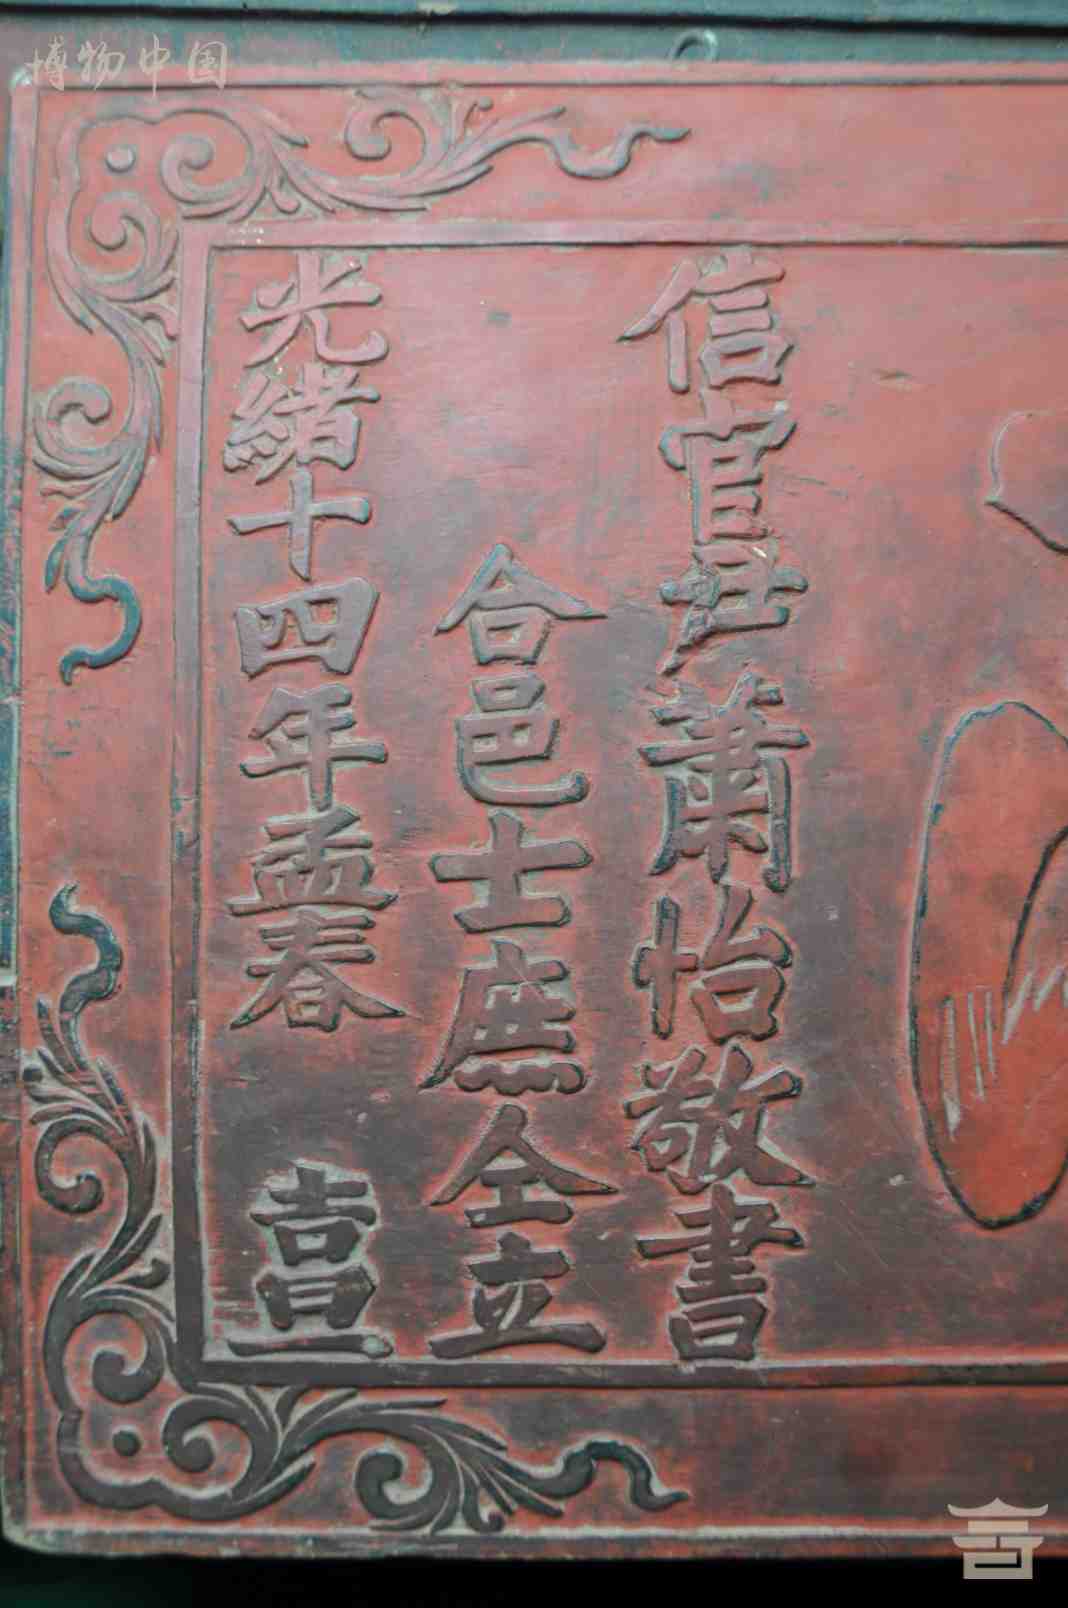 博物中国
信官蕭怡敬書
合邑士庶仝立
光緒十四年孟春 吉旦